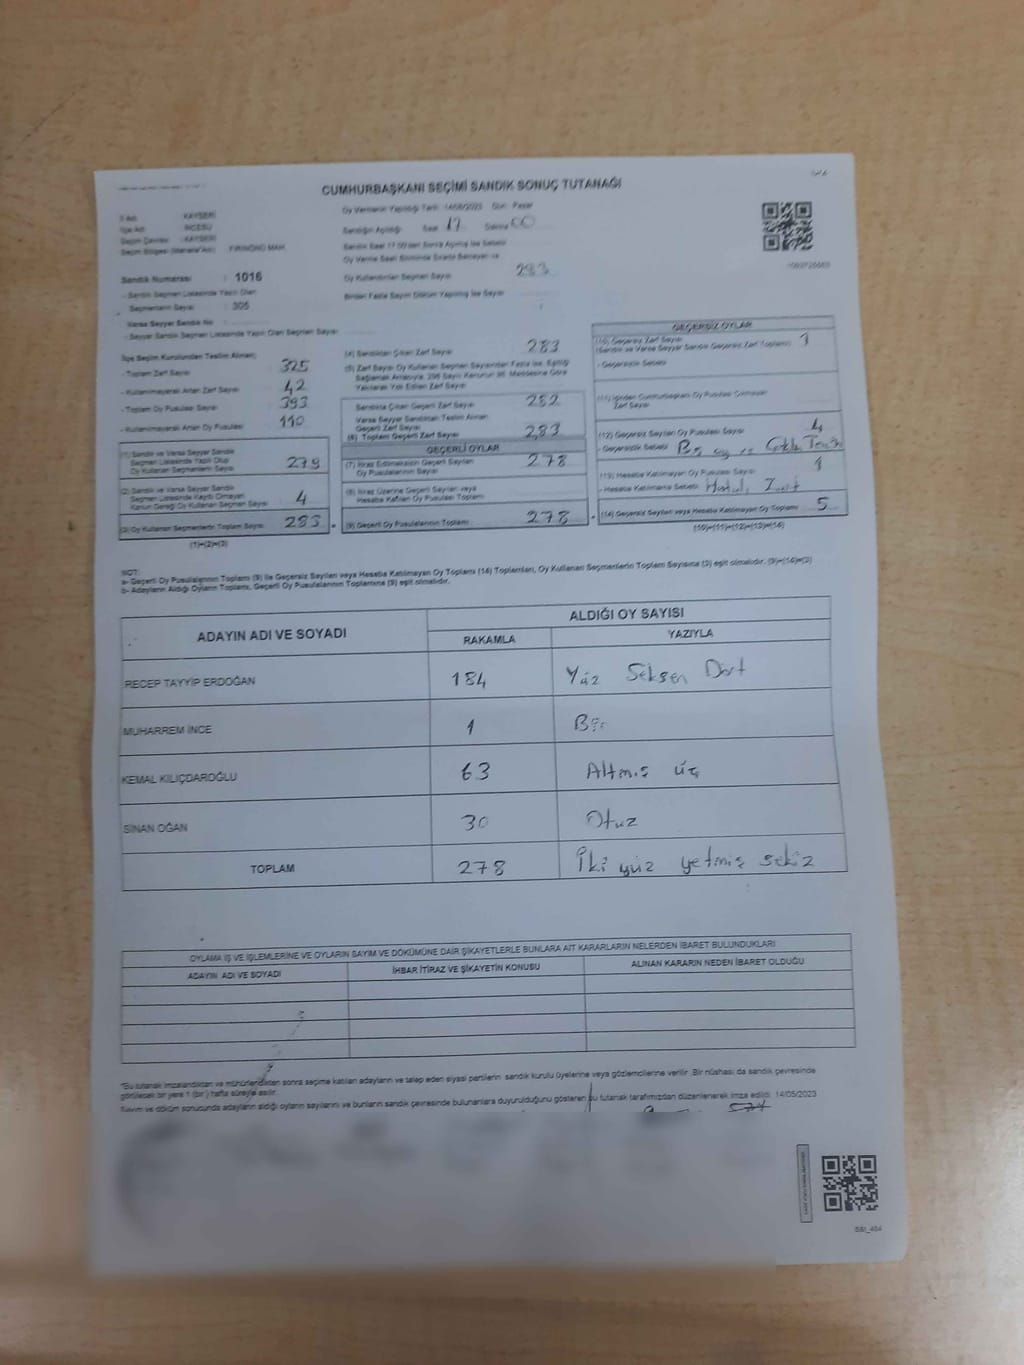 CUMHURBAŞKANI SEÇİMİ SANDIK SONUÇ TUTANAĞI
İl Adı : KAYSERİ
İlçe Adı : İNCESU
Seçim Çevresi : KAYSERİ
Seçim Bölgesi (Mahalle/Adı)
Oy Vermenin Yapıldığı Tarih : 14/05/2023 Gün : Pazar
Sandığın Açıldığı Saat 17 Dakika 00
Oy Kullandırılan Seçmen Sayısı 283
Birden Fazla Sayım Döküm Yapılmış İse Sayısı
Sandık Numarası : 1016
- Sandık Seçmen Listesinde Yazılı Olan
Seçmenlerin Sayısı : 305
Varsa Seyyar Sandık No
- Seyyar Sandık Seçmen Listesinde Yazılı Olan Seçmen Sayısı
İlçe Seçim Kurulundan Teslim Alınan;
- Toplam Zarf Sayısı 325
- Kullanılmayarak Artan Zarf Sayısı 42
- Toplam Oy Pusulası Sayısı 393
- Kullanılmayarak Artan Oy Pusulası 110
(1) Sandık ve Varsa Seyyar Sandık
Seçmen Listesinde Yazılı Olup
Oy Kullanan Seçmenlerin Sayısı 279
(2) Sandık ve Varsa Seyyar Sandık
Seçmen Listesinde Kaydı Olmayan
Kanun Gereği Oy Kullanan Seçmen Sayısı 4
(3) Oy Kullanan Seçmenlerin Toplam Sayısı 283
(1)+(2)=(3)
(4) Sandıktan Çıkan Zarf Sayısı 283
(5) Zarf Sayısı Oy Kullanan Seçmen Sayısından Fazla İse, Eşitliği
Sağlamak Amacıyla, 298 Sayılı Kanunun 98. Maddesine Göre
Yakılarak Yok Edilen Zarf Sayısı
Sandıkta Çıkan Geçerli Zarf Sayısı 282
Varsa Seyyar Sandıktan Teslim Alınan
Geçerli Zarf Sayısı
(6) Toplam Geçerli Zarf Sayısı 283
GEÇERLİ OYLAR
(7) İtiraz Edilmeksizin Geçerli Sayılan
Oy Pusulalarının Sayısı 278
(8) İtiraz Üzerine Geçerli Sayılan veya
Hesaba Katılan Oy Pusulası Toplamı
(9) Geçerli Oy Pusulalarının Toplamı 278
GEÇERSİZ OYLAR
(10) Geçersiz Zarf Sayısı 1
(Sandık ve Varsa Seyyar Sandık Geçersiz Zarf Toplamı)
- Geçersizlik Sebebi
(11) İçinden Cumhurbaşkanı Oy Pusulası Çıkmayan
Zarf Sayısı
(12) Geçersiz Sayılan Oy Pusulası Sayısı 4
- Geçersizlik Sebebi
(13) Hesaba Katılmayan Oy Pusulası Sayısı 1
- Hesaba Katılmama Sebebi Hatalı Zarf
(14) Geçersiz Sayılan veya Hesaba Katılmayan Oy Toplamı 5
(10)+(11)+(12)+(13)=(14)
NOT:
a- Geçerli Oy Pusulalarının Toplamı (9) ile Geçersiz Sayılan veya Hesaba Katılmayan Oy Toplamı (14) Toplamları, Oy Kullanan Seçmenlerin Toplam Sayısına (3) eşit olmalıdır. (9)+(14)=(3)
b- Adayların Aldığı Oyların Toplamı, Geçerli Oy Pusulalarının Toplamına (9) eşit olmalıdır.
ADAYIN ADI VE SOYADI
ALDIĞI OY SAYISI
RAKAMLA YAZIYLA
RECEP TAYYİP ERDOĞAN 184 Yüz Seksen Dört
MUHARREM İNCE 1 Bir
KEMAL KILIÇDAROĞLU 63 Altmış üç
SİNAN OĞAN 30 Otuz
TOPLAM 278 İki yüz yetmiş sekiz
OYLAMA İŞ VE İŞLEMLERİNE VE OYLARIN SAYIM VE DÖKÜMÜNE DAİR ŞİKAYETLERLE BUNLARA AİT KARARLARIN NELERDEN İBARET BULUNDUKLARI
ADAYIN ADI VE SOYADI İHBAR İTİRAZ VE ŞİKAYETİN KONUSU ALINAN KARARIN NEDEN İBARET OLDUĞU
*Bu tutanak imzalandıktan ve mühürlendikten sonra seçime katılan adayların ve talep eden siyasi partilerin sandık kurulu üyelerine veya gözlemcilerine verilir. Bir nüshası da sandık çevresinde
görülecek bir yere 1 (bir) hafta süreyle asılır.
Sayım ve döküm sonucunda adayların aldığı oyların sayılarını ve bunların sandık çevresinde bulunanlara duyurulduğunu gösteren bu tutanak tarafımızdan düzenlenerek imza edildi. 14/05/2023